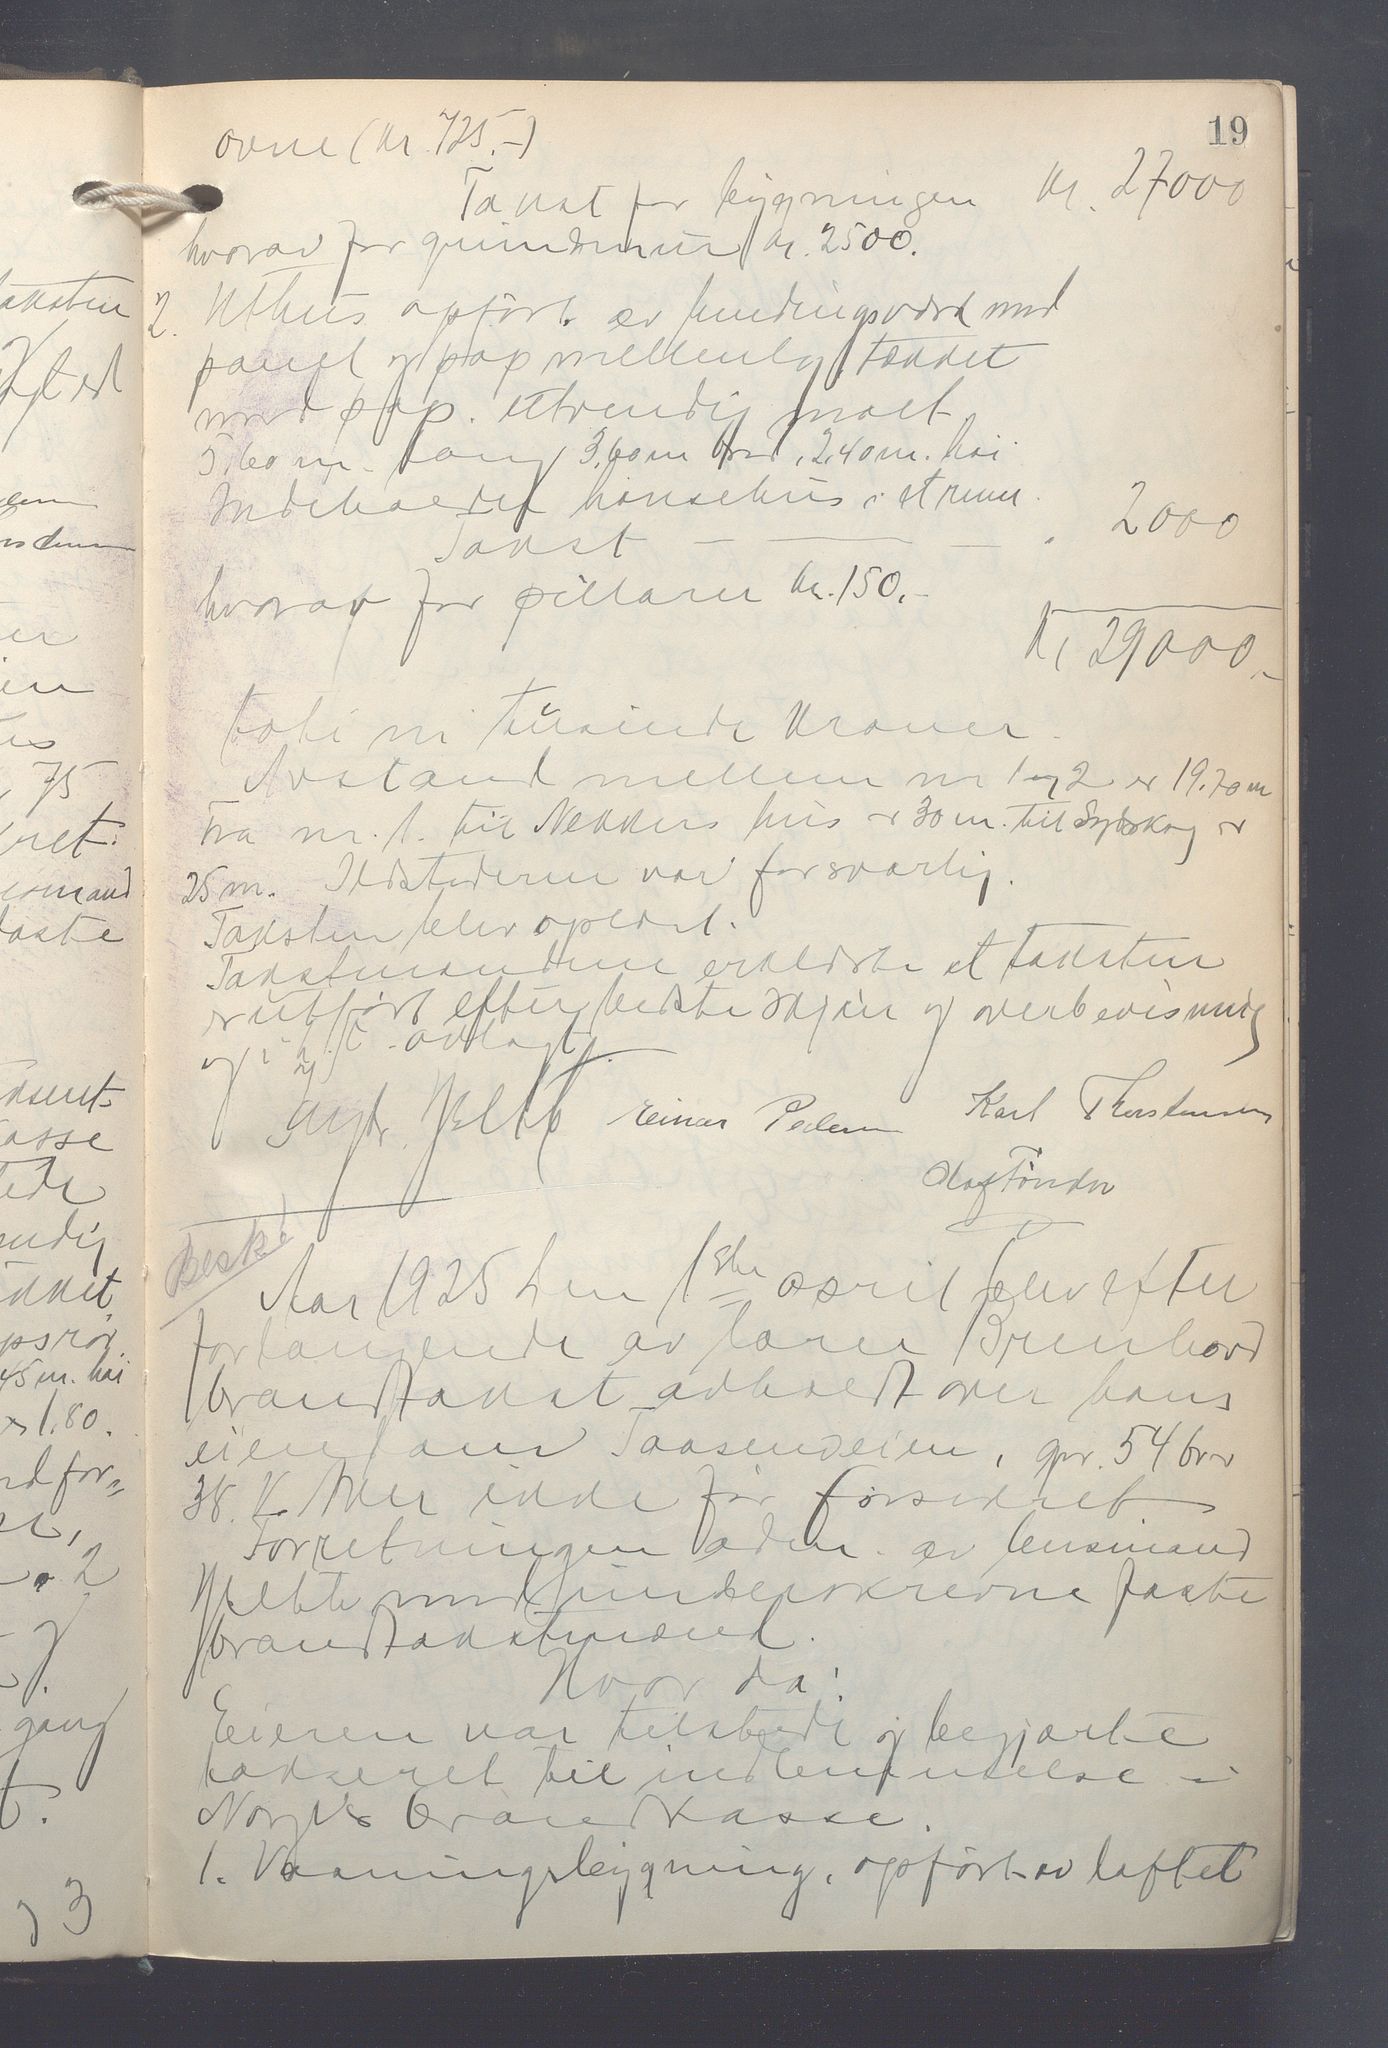 19
ovne (kr. 725.-)
Takst for bygningen kr. 27000
hvorav for grundmur kr. 2500.
2. Uthus opført av bindingsverk med
panel og pap mellemlag tækket
med pap. utvendig malt
5,60 m. lang 3,60 m bred, 2,40 m. høi
Indeholder hønsehus i et rum.
Takst - — - . 2000
hvorav for pillarer kr. 150.-
Kr 29000.-
toti ni tusinde kroner.
Avstand mellem nr 1 og 2 er 19.70 m
Fra nr. 1. til Nekkers hus er 30 m. til er
25 m. Ildstederne var forsvarlig.
Taksten blev oplæst.
Takstmændene erklærte at taksten
er utført efter bedste skjøn og overbevisning
og i h. t. avlagt
Hjelte Einar Pedersen Karl Thorstensen
Olaf Tönder
Besk.
Aar 1925 den 1ste april blev efter
forlangende av lærer Brenhovd
brandtakst avholdt over hans
eiendom Taasenveien, gnr. 54 bnr
38. V. Aker ikke før forsikret
Forretningen adm. av lensmand
Hjelte med underskrevne faste
brandtakstmænd.
Hvor da:
Eieren var tilstede og begjærte
takseret til indlemmelse i
Norges Brandkasse.
1. Vaaningsbygning, opført av laftet
taksten
75
kret.
lensmand
faste
takseret
kasse
tilstede
tækket
45 m. høi
x 1,80.
2
og
gang
og 3